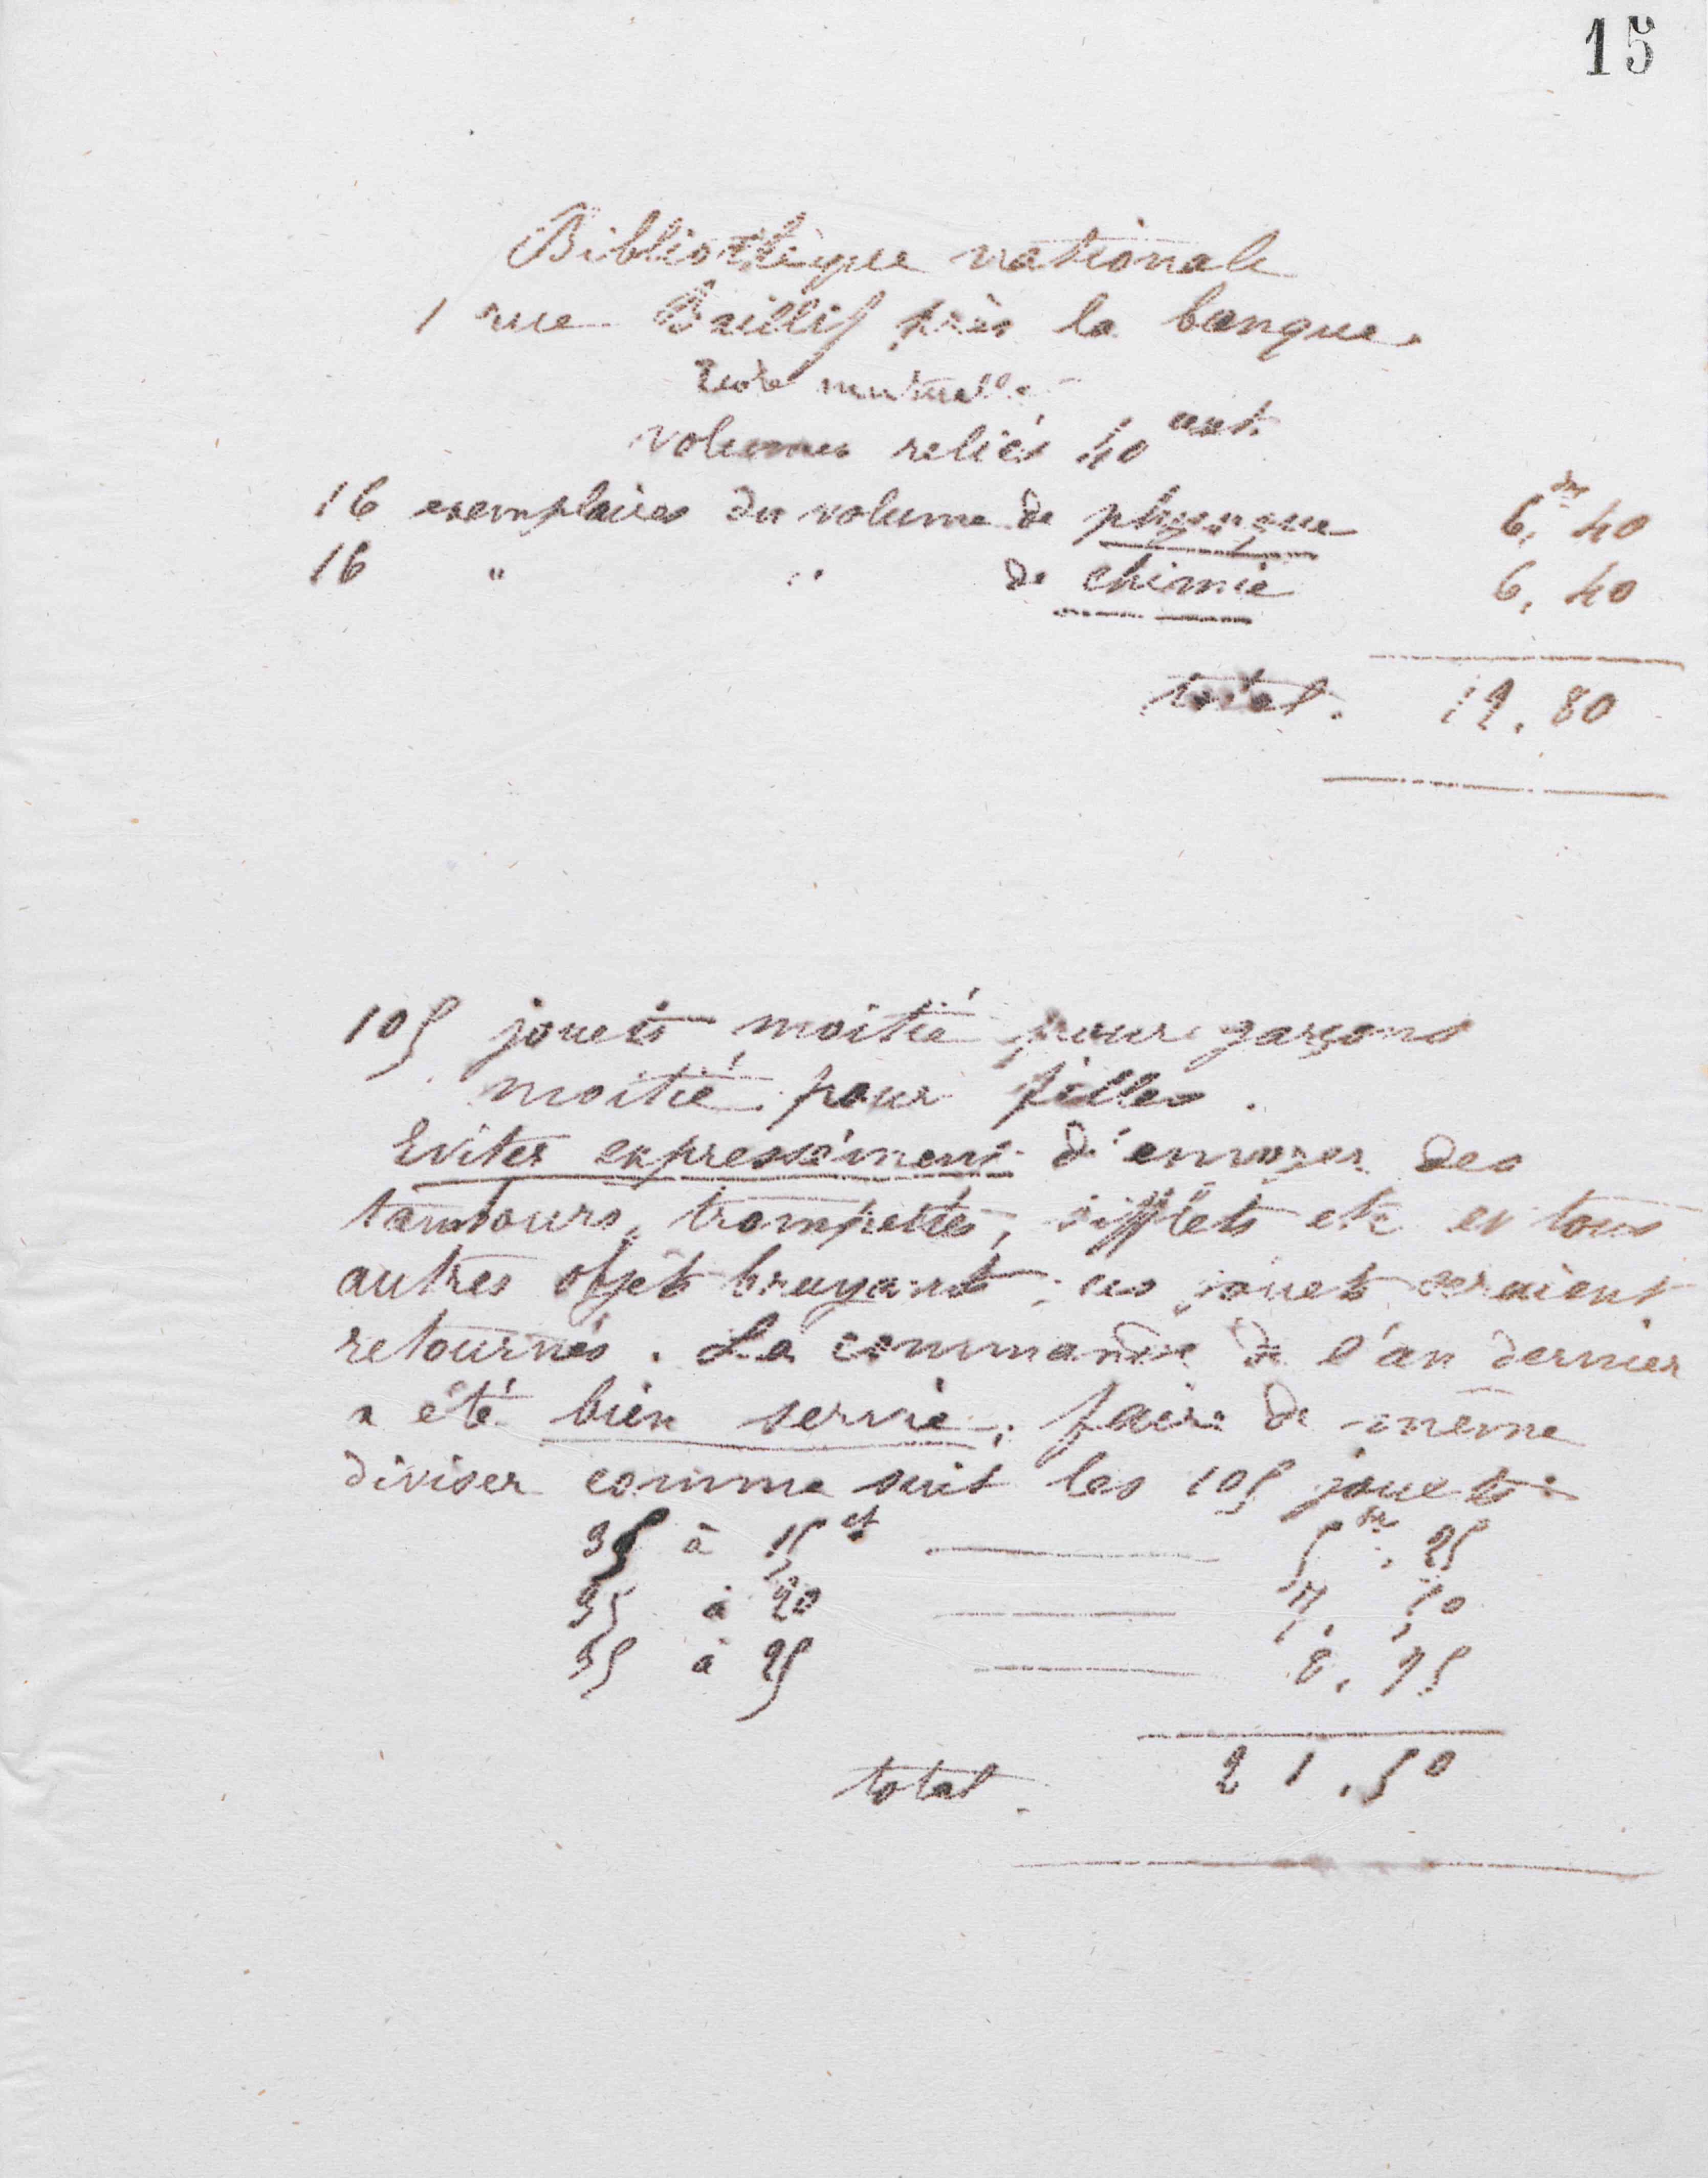 15
Bibliothèque nationale
1 rue Baillif près la banque.
Ecole mutuelle
volumes reliés 40 cent.
16 exemplaires du volume de physique 6, 40
16 " " de chimie 6, 40
total. 12. 80
105 jouets moitié pour garçons
moitié pour filles.
Eviter expressément d'envoyer des
tambours, trompettes, sifflets etc et tous
autres objets bruyants ; ces jouets seraient
retournés. La commande de l'an dernier
a été bien servie ; faire de même
diviser comme suit les 105 jouets :
35 à 15 ct 5 fr, 25
35 à 20 7, 50
35 à 25 8, 75
total. 21. 50